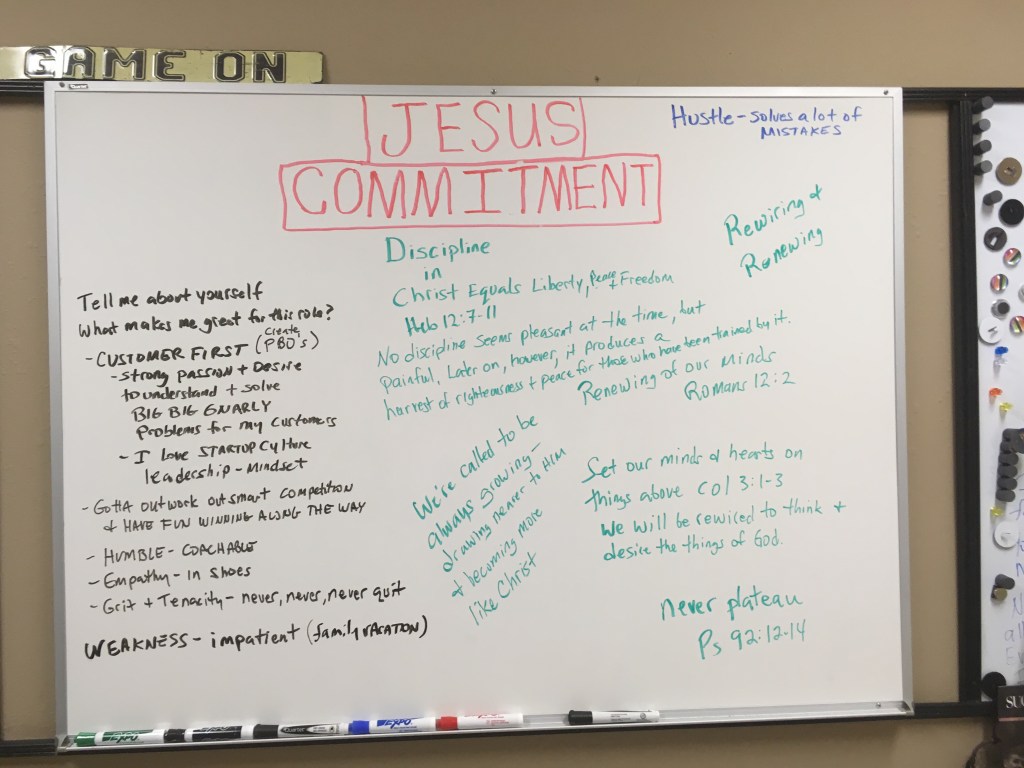 GAME ON
JESUS
COMMITMENT
Hustle - solves a lot of
MISTAKES
Rewiring &
Renewing
Discipline
in
Christ Equals Liberty, Peace + Freedom
Heb 12:7-11
No discipline seems pleasant at the time, but
painful. Later on, however, it produces a
harvest of righteousness + peace for those who have been trained by it.
Renewing of our minds
Romans 12:2
Tell me about yourself
What makes me great for this role?
- CUSTOMER FIRST (Create PBO's)
- Strong passion + Desire
to understand + solve
BIG BIG GNARLY
Problems for my customers
- I Love STARTUP Culture
leadership - mindset
- Gotta outwork outsmart COMPETITION
& HAVE FUN WINNING ALONG THE WAY
- HUMBLE - COACHABLE
- Empathy - In Shoes
- Grit + Tenacity - never, never, never quit
WEAKNESS - impatient (family VACATION)
We're called to be
always growing -
drawing nearer to HIM
& becoming more
like Christ
Set our minds & hearts on
things above Col 3:1-3
We will be rewired to think &
desire the things of God.
never plateau
Ps 92:12-14
EXPO
EXPO
Quartet
EXPO
EXPO
SU